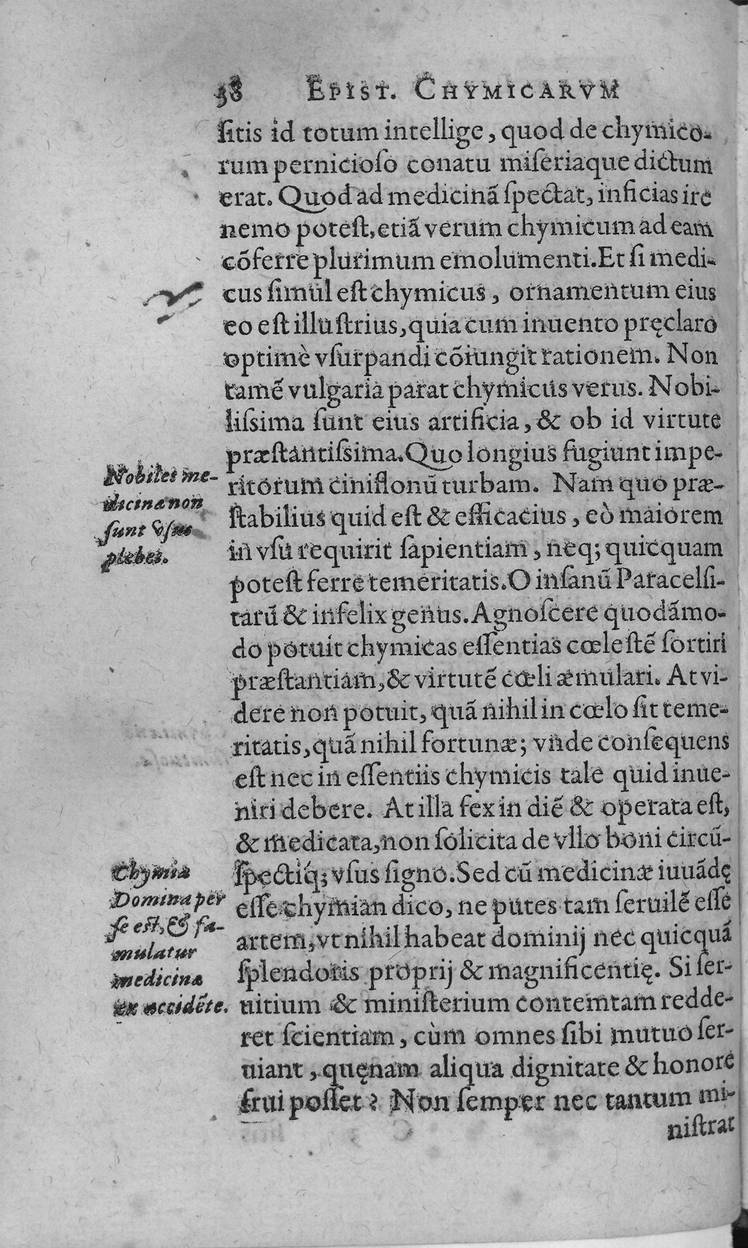 38 EPIST. CHYMICARVM
ſitis id totum intellige, quod de chymico-
rum pernicioſo conatu miſeriaque dictum
erat. Quod ad medicinã ſpectat, inficias ire
nemo poteſt, etiã verum chymicum ad eam
cõferre plurimum emolumenti. Et ſi medi-
cus ſimul eſt chymicus, ornamentum eius
eo eſt illuſtrius, quia cum inuento pręclaro
optimè vſurpandi cõiungit rationem. Non
tamẽ vulgaria parat chymicus verus. Nobi-
liſsima ſunt eius artificia, & ob id virtute
præſtantiſsima. Quo longius fugiunt impe-
ritorum ciniflonũ turbam. Nam quo præ-
ſtabilius quid eſt & efficacius, eò maiorem
in vſu requirit ſapientiam, neq; quicquam
poteſt ferre temeritatis. O inſanũ Paracelſi-
tarũ & infelix genus. Agnoſcere quodãmo-
do potuit chymicas eſſentias cœleſtẽ ſortiri
præſtantiam, & virtutẽ cœli æmulari. At vi-
dere non potuit, quã nihil in cœlo ſit teme-
ritatis, quã nihil fortunæ; vnde conſequens
eſt nec in eſſentiis chymicis tale quid inue-
niri debere. At illa fex in diẽ & operata eſt,
& medicata, non ſolicita de vllo boni circũ-
ſpectiq́; vſus ſigno. Sed cũ medicinæ iuuãdę
eſſe chymian dico, ne putes tam ſeruilẽ eſſe
artem, vt nihil habeat dominij nec quicquã
ſplendoris proprij & magnificentię. Si ſer-
uitium & miniſterium contemtam redde-
ret ſcientiam, cùm omnes ſibi mutuo ſer-
uiant, quęnam aliqua dignitate & honore
frui poſſet? Non ſemper nec tantum mi-
niſtrat
Nobiles me-
dicinæ non
ſunt vſus
plebei.
Chymia
Domina per
ſe eſt, & fa-
mulatur
medicinæ
ex accidẽte.